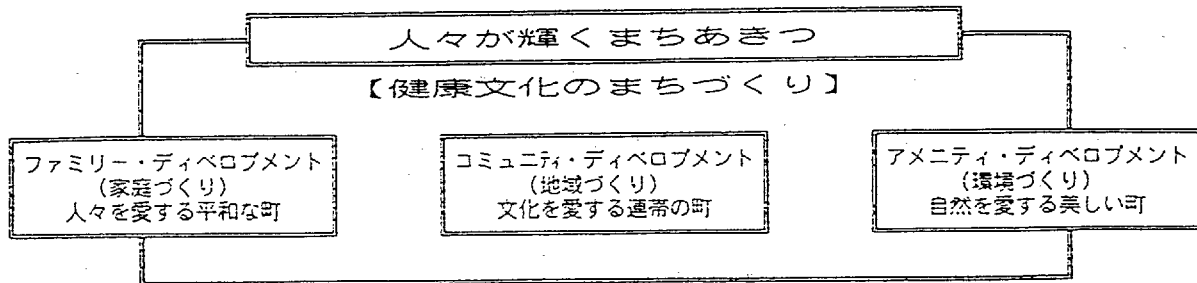 人々が輝くまちあきつ
【健康文化のまちづくり】
ファミリー・ディベロプメント
(家庭づくり)
人々を愛する平和な町
コミュニティ・ディベロプメント
(地域づくり)
文化を愛する連帯の町
アメニティ・ディベロプメント
(環境づくり)
自然を愛する美しい町